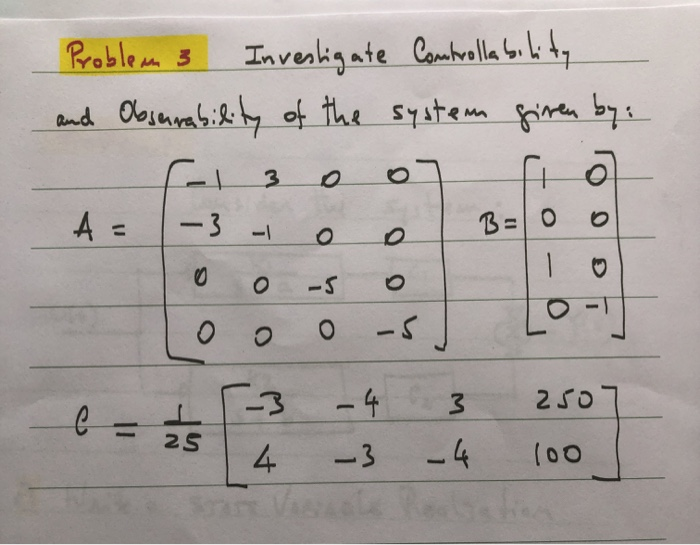 Problem 3 Investigate Controllability
and Observability of the system given by:
A = [ -1 3 0 0
-3 -1 0 0
0 0 -5 0
0 0 0 -5 ]
B = [ 1 0
0 0
1 0
0 -1 ]
C = 1/25 [ -3 -4 3 250
4 -3 -4 100 ]